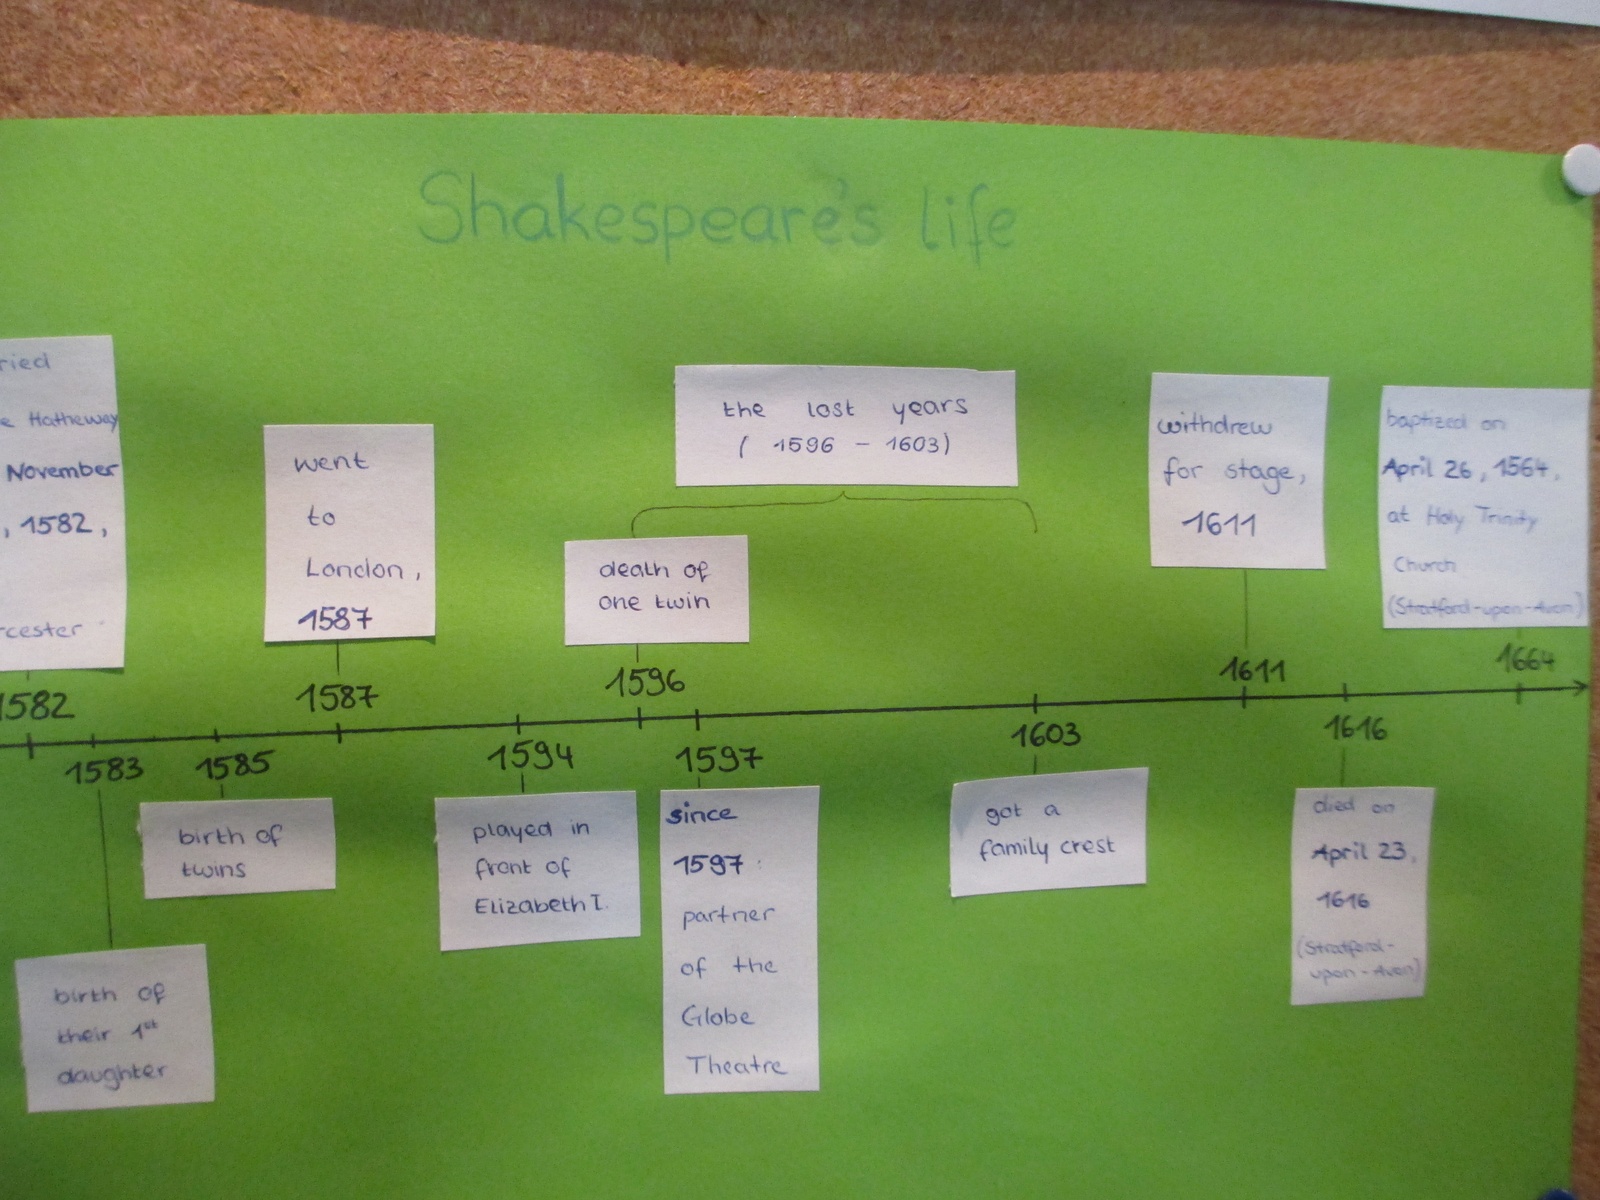 Shakespeare's life
ried
e Hatheway
November
, 1582,
rcester
1582
went
to
London,
1587
1587
the lost years
( 1596 – 1603)
death of
one twin
1596
withdrew
for stage,
1611
1611
baptized on
April 26, 1564,
at Holy Trinity
Church
(Stratford-upon-Avon)
1664
1583
birth of
their 1st
daughter
1585
birth of
twins
1594
played in
front of
Elizabeth I.
1597
since
1597
partner
of the
Globe
Theatre
1603
got a
family crest
1616
died on
April 23,
1616
(Stratford-
upon-Avon)